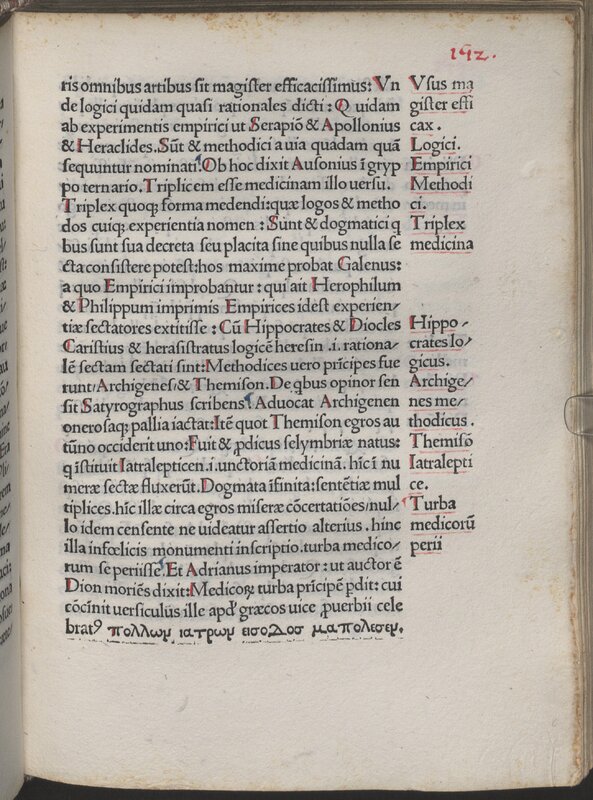 192.
ris omnibus artibus sit magister efficacissimus: Vn
de logici quidam quasi rationales dicti: Quidam
ab experimentis empirici ut Serapiõ & Apollonius
& Heraclides. Sũt & methodici a uia quadam quã
sequuntur nominati. Ob hoc dixit Ausonius ĩ gryp
po ternario. Triplicem esse medicinam illo uersu.
Triplex quoq; forma medendi: quæ logos & metho
dos cuiq; experientia nomen: Sunt & dogmatici q
bus sunt sua decreta seu placita sine quibus nulla se
cta consistere potest: hos maxime probat Galenus:
a quo Empirici improbantur: qui ait Herophilum
& Philippum imprimis Empirices idest experien/
tiæ sectatores extitisse: Cũ Hippocrates & Diocles
Caristius & herasistratus logicẽ heresin .i. rationa/
lẽ sectam sectati sint: Methodices uero prĩcipes fue
runt Archigenes & Themison. De qbus opinor sen
sit Satyrographus scribens. Aduocat Archigenen
onerosaq; pallia iactat: Itẽ quot Themison egros au
tũno occiderit uno: Fuit & ꝓdicus selymbriæ natus:
q ĩstituit Iatralepticen .i. unctoriã medicinã. hĩc ĩ nu
meræ sectæ fluxerũt. Dogmata ĩfinita: sentẽtiæ mul
tiplices. hĩc illæ circa egros miseræ cõcertatiões/nul/
lo idem censente ne uideatur assertio alterius. hinc
illa infœlicis monumenti inscriptio. turba medico/
rum se periisse. Et Adrianus imperator: ut auctor ẽ
Dion moriẽs dixit: Medicoꝝ turba prĩcipẽ ꝑdit: cui
cõcinit uersiculus ille apd' græcos uice ꝓuerbii cele
bratꝰ πολλων ιατρων εισοδοσ μαπολεσεν.
Vsus ma
gister effi
cax.
Logici.
Empirici
Methodi
ci.
Triplex
medicina
Hippo/
crates lo/
gicus.
Archige/
nes me/
thodicus.
Themisõ
Iatralepti
ce.
Turba
medicorũ
perii